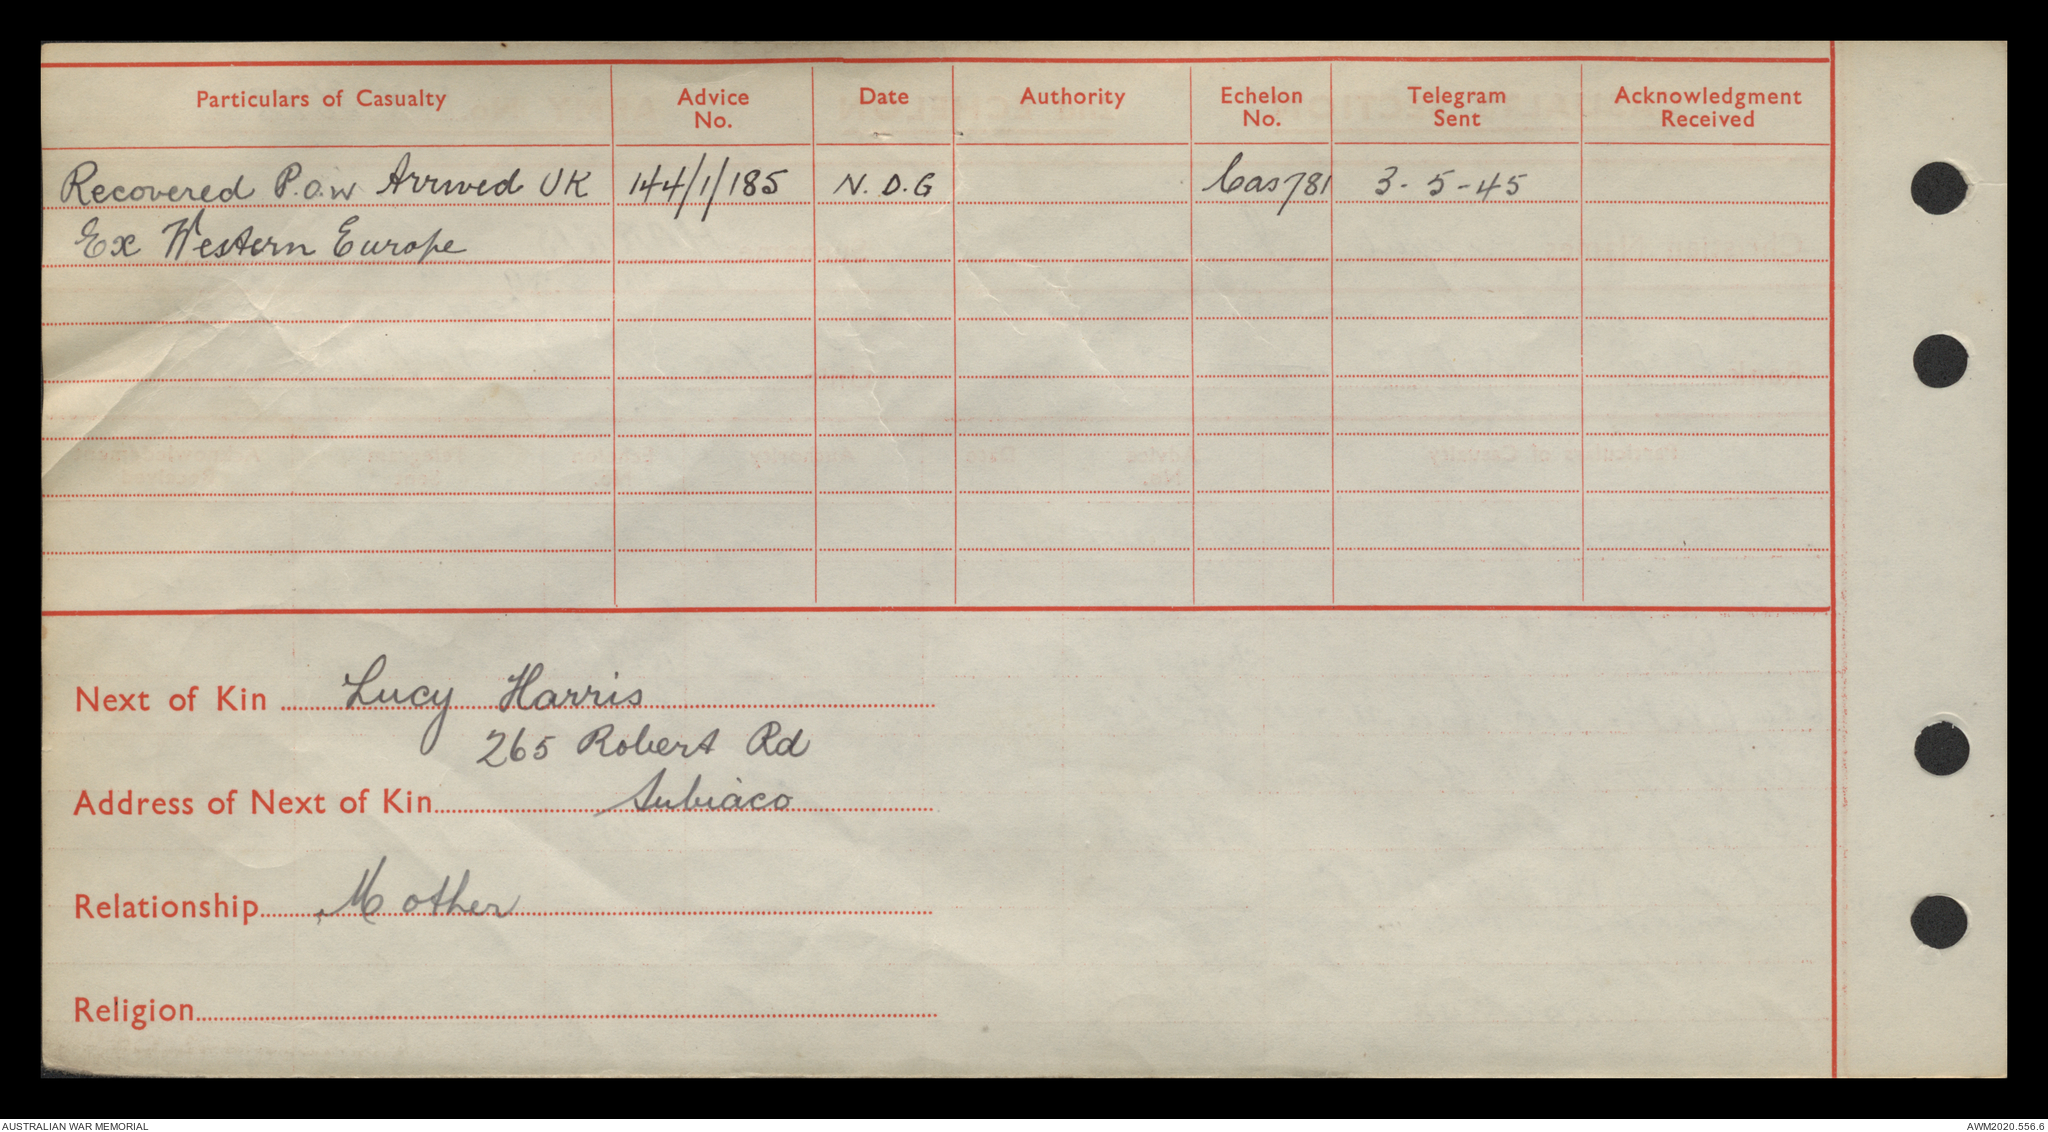 Particulars of Casualty Advice No. Date Authority Echelon No. Telegram Sent Acknowledgment Received
Recovered P.O.W Arrived UK 144/1/185 N.D.G Cas781 3-5-45
Ex Western Europe
Next of Kin Lucy Harris
265 Robert Rd
Address of Next of Kin Subiaco
Relationship Mother
Religion
AUSTRALIAN WAR MEMORIAL AWM2020.556.6